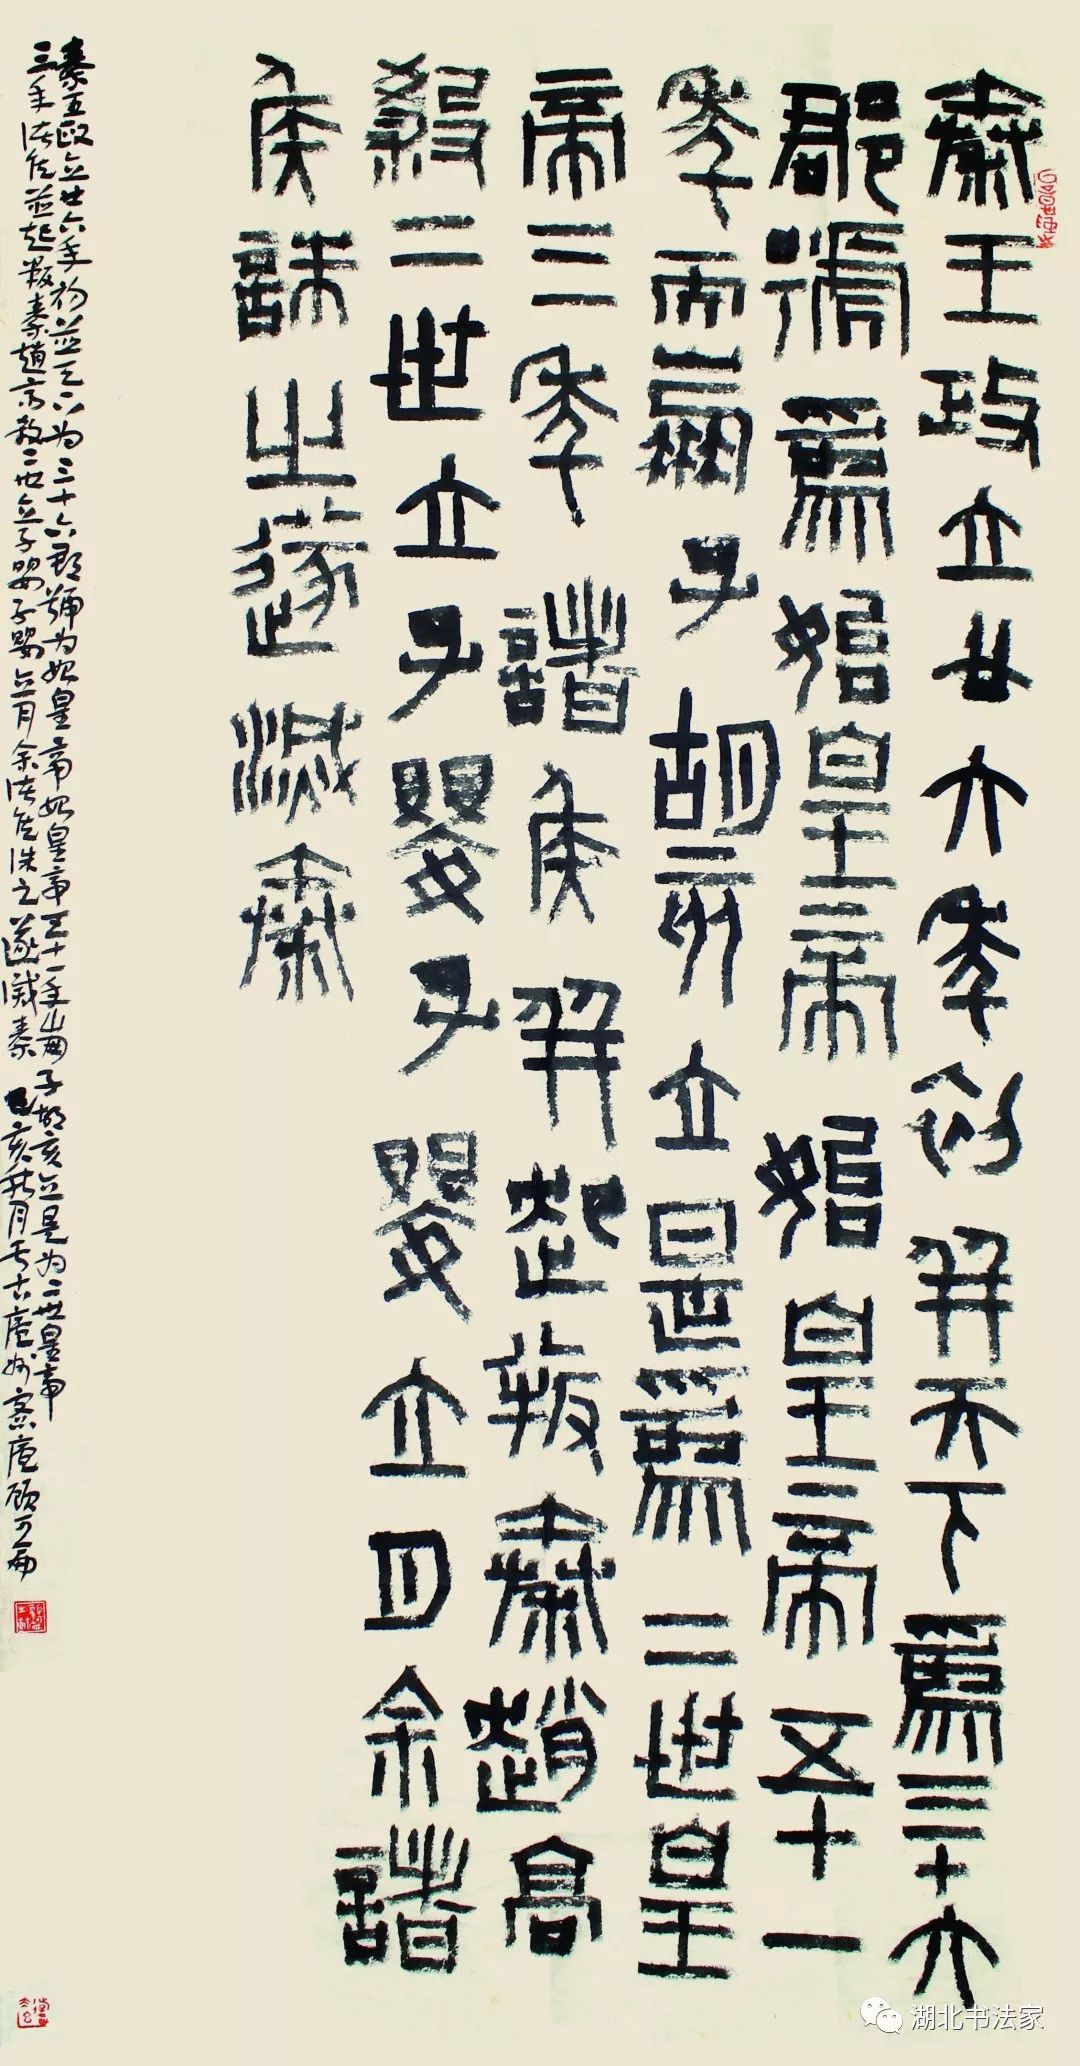 秦王政立廿六年初并天下爲三十六
郡號爲始皇帝始皇帝五十一
年而崩子胡亥立是爲二世皇
帝三年諸侯并起叛秦趙高
殺二世立子嬰子嬰立月余諸
侯誅之遂滅秦
秦王政立廿六年初並天下为三十六郡號为始皇帝始皇帝五十一年崩子胡亥立是为二世皇帝
三年诸侯並起叛秦趙高殺二世立子嬰子嬰立月余诸侯诛之遂滅秦 己亥秋月于古
湖北书法家